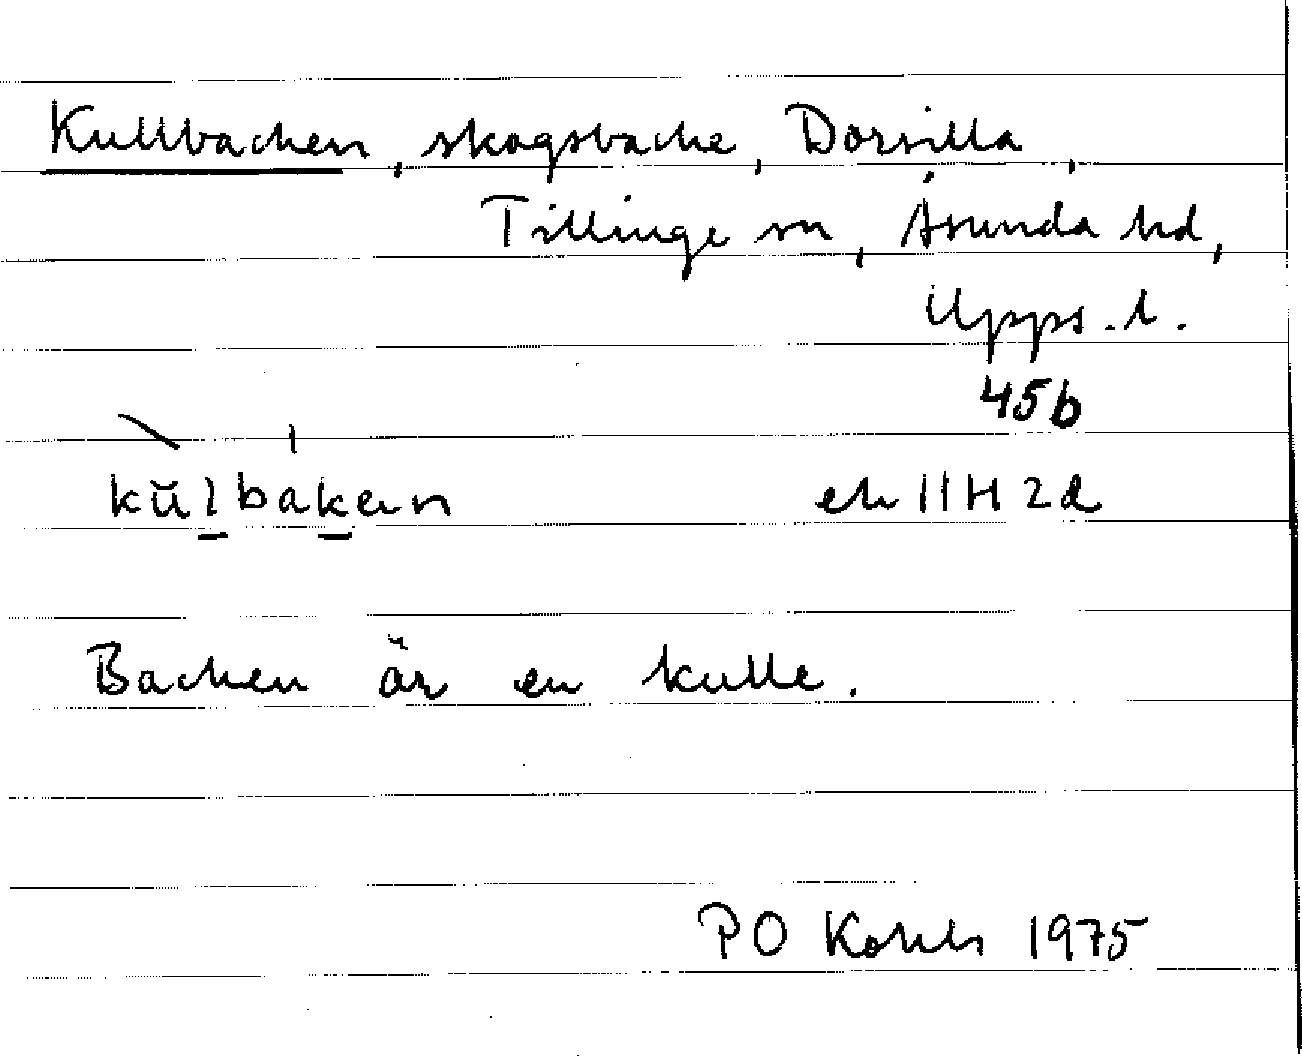 Kullbacken, skogsbacke, Dorsilla,
Tillinge sn, Åsunda hd,
Upps. l.
45b
kŭlbakən ek 11H 2d
Backen är en kulle.
PO 1975